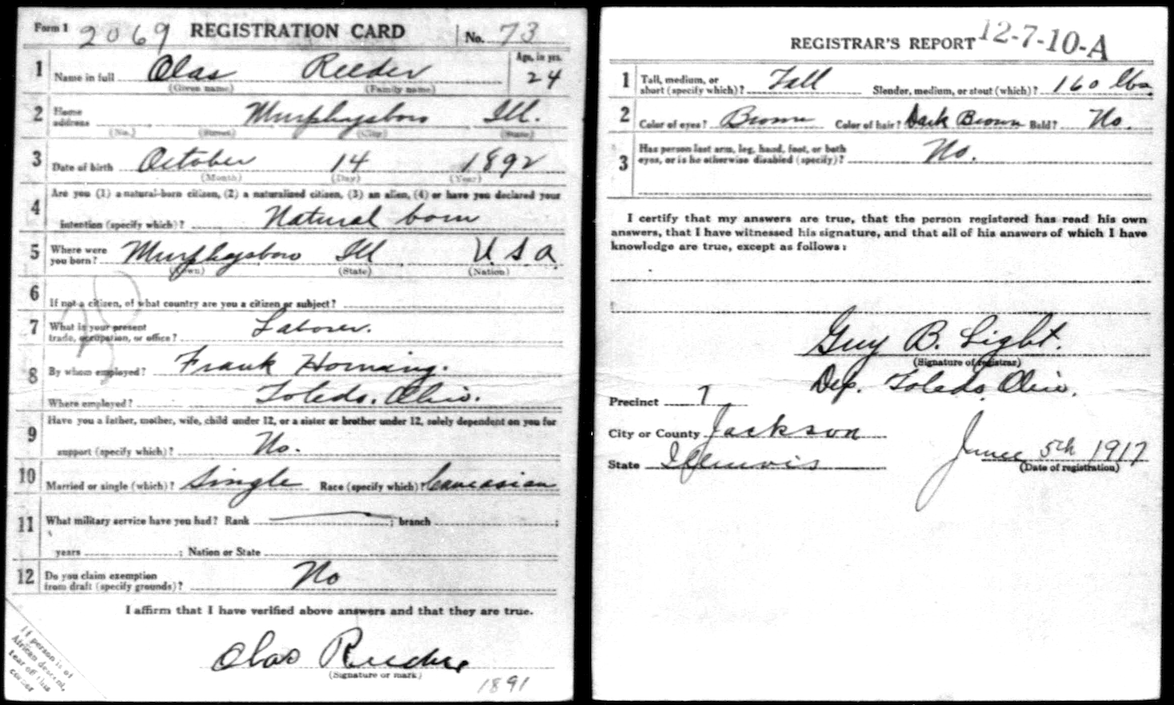 Form 1 2069 REGISTRATION CARD No. 73
1 Name in full Olas Reeder Age, in yrs. 24
(Given name) (Family name)
2 Home address Murphysboro Ill.
(No.) (Street) (City) (State)
3 Date of birth October 14 1892
(Month) (Day) (Year)
4 Are you (1) a natural-born citizen, (2) a naturalized citizen, (3) an alien, (4) or have you declared your
intention (specify which)? Natural born
5 Where were you born? Murphysboro Ill U S A
(Town) (State) (Nation)
6 If not a citizen, of what country are you a citizen or subject?
7 What is your present trade, occupation, or office? Laborer.
8 By whom employed? Frank Horning.
Where employed? Toledo, Ohio.
9 Have you a father, mother, wife, child under 12, or a sister or brother under 12, solely dependent on you for
support (specify which)? No.
10 Married or single (which)? Single Race (specify which)? Caucasian
11 What military service have you had? Rank ; branch ;
years ; Nation or State
12 Do you claim exemption from draft (specify grounds)? No
I affirm that I have verified above answers and that they are true.
Olas Reeder
(Signature or mark)
1891
If person is of
African descent,
tear off this
corner
REGISTRAR'S REPORT 12-7-10-A
1 Tall, medium, or short (specify which)? Tall Slender, medium, or stout (which)? 160 lbs.
2 Color of eyes? Brown Color of hair? Dark Brown Bald? No.
3 Has person lost arm, leg, hand, foot, or both
eyes, or is he otherwise disabled (specify)? No.
I certify that my answers are true, that the person registered has read his own
answers, that I have witnessed his signature, and that all of his answers of which I have
knowledge are true, except as follows:
Guy B. Light.
(Signature of registrar)
Dep. Toledo, Ohio.
Precinct 7
City or County Jackson
State Illinois June 5th 1917
(Date of registration)